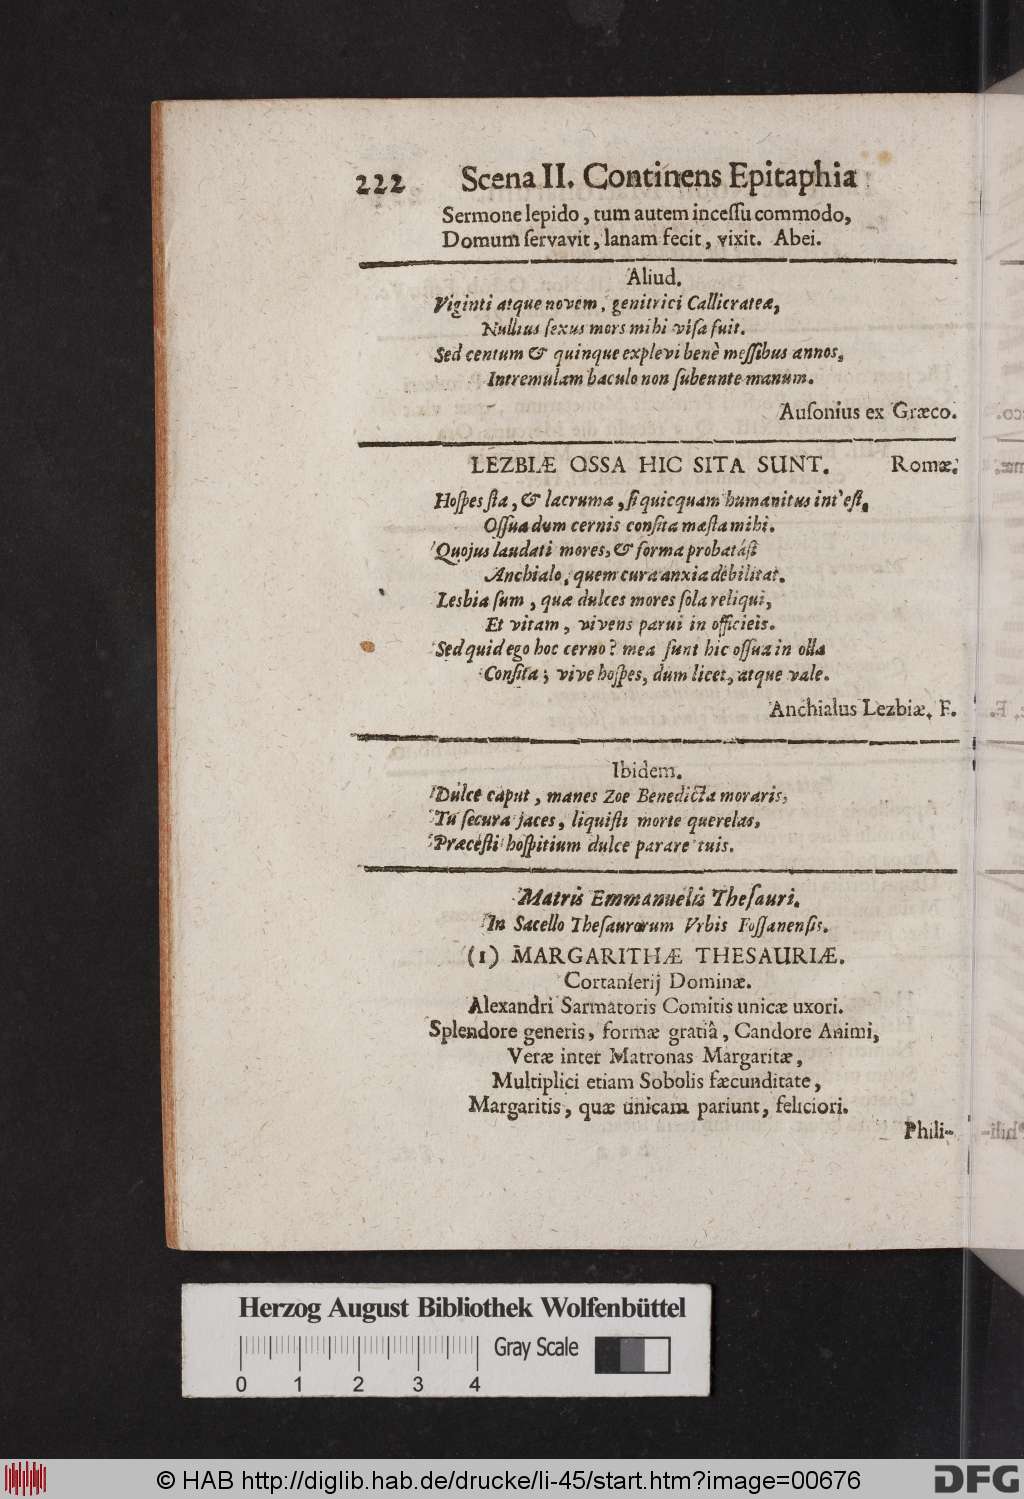 222 Scena II. Continens Epitaphia
Sermone lepido, tum autem incessu commodo,
Domum servavit, lanam fecit, vixit. Abei.
Aliud.
Viginti atque novem, genitrici Callicrateæ,
Nullius sexus mors mihi visa fuit.
Sed centum & quinque explevi benè messibus annos,
Intremulam baculo non subeunte manum.
Ausonius ex Græco.
LEZBIÆ OSSA HIC SITA SUNT. Romæ.
Hospes sta, & lacruma, si quicquam humanitus int' est,
Ossua dum cernis consita mæsta mihi.
Quojus laudati mores, & forma probatást
Anchialo, quem cura anxia debilitat.
Lesbia sum, quæ dulces mores sola reliqui,
Et vitam, vivens parui in officieis.
Sed quid ego hoc cerno? mea sunt hic ossua in olla
Consita; vive hospes, dum licet, atque vale.
Anchialus Lezbiæ, F.
Ibidem.
Dulce caput, manes Zoe Benedicta moraris,
Tu secura jaces, liquisti morte querelas,
Præcesti hospitium dulce parare tuis.
Matris Emmanuelis Thesauri.
In Sacello Thesaurorum Vrbis Fossanensis.
(1) MARGARITHÆ THESAURIÆ.
Cortanserij Dominæ.
Alexandri Sarmatoris Comitis unicæ uxori.
Splendore generis, formæ gratiâ, Candore Animi,
Veræ inter Matronas Margaritæ,
Multiplici etiam Sobolis fæcunditate,
Margaritis, quæ unicam pariunt, feliciori.
Phili-
Herzog August Bibliothek Wolfenbüttel
Gray Scale
0 1 2 3 4
© HAB http://diglib.hab.de/drucke/li-45/start.htm?image=00676
DFG